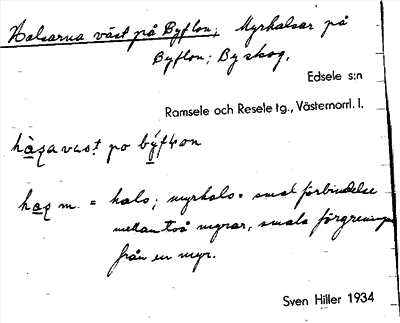 Halsarna väst på Byflon; Myrhalsar på
Byflon; Byskog.
Edsele s:n
Ramsele och Resele tg., Västernorrl. l.
po
m. = hals; myrhals = smal förbindelse
mellan två myrar, smala förgreningar
från en myr.
Sven Hiller 1934